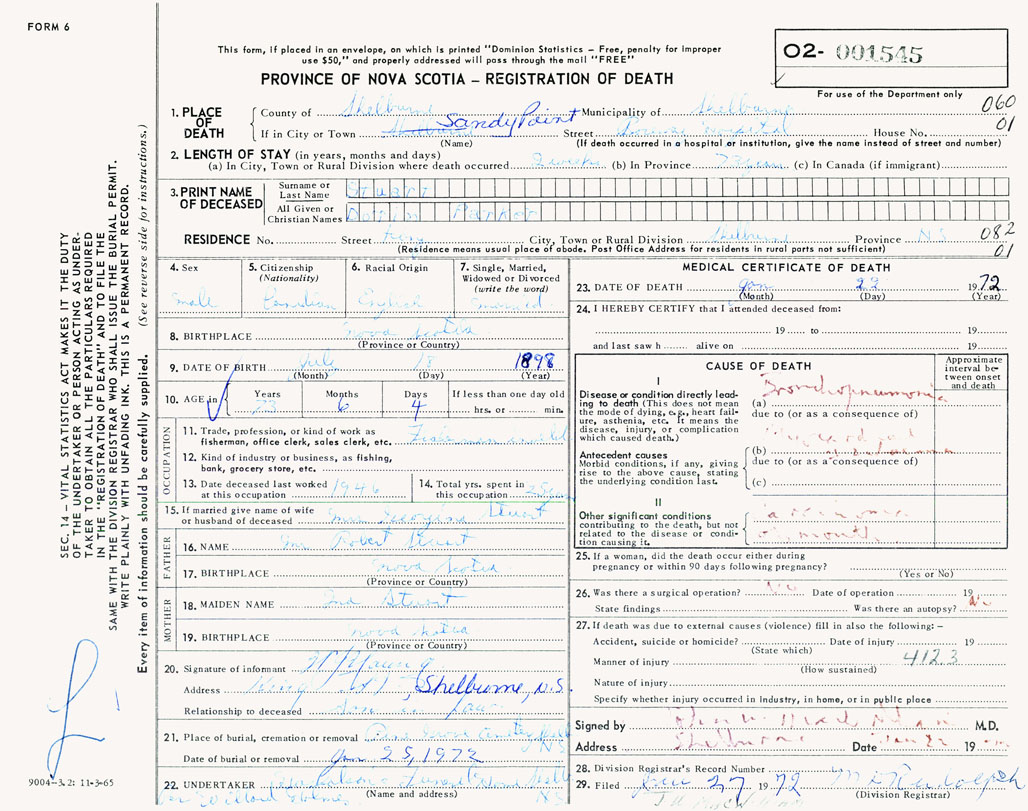 FORM 6
This form, if placed in an envelope, on which is printed "Dominion Statistics – Free, penalty for improper
use $50," and properly addressed will pass through the mail "FREE"
PROVINCE OF NOVA SCOTIA – REGISTRATION OF DEATH
O2- 001545
For use of the Department only
SEC. 14 – VITAL STATISTICS ACT MAKES IT THE DUTY
OF THE UNDERTAKER OR PERSON ACTING AS UNDER-
TAKER TO OBTAIN ALL THE PARTICULARS REQUIRED
IN THE "REGISTRATION OF DEATH" AND TO FILE THE
SAME WITH THE DIVISION REGISTRAR WHO SHALL ISSUE THE BURIAL PERMIT.
WRITE PLAINLY WITH UNFADING INK. THIS IS A PERMANENT RECORD.
Every item of information should be carefully supplied. (See reverse side for instructions.)
1. PLACE OF DEATH
County of Shelburne Municipality of Shelburne 060
If in City or Town Shelburne Sandy Point Street Hospital House No. 01
(Name) (If death occurred in a hospital or institution, give the name instead of street and number)
2. LENGTH OF STAY (in years, months and days)
(a) In City, Town or Rural Division where death occurred 2 weeks (b) In Province 73 years (c) In Canada (if immigrant)
3. PRINT NAME OF DECEASED
Surname or Last Name Stuart
All Given or Christian Names Parker
RESIDENCE No. Street King City, Town or Rural Division Shelburne Province N.S. 082
(Residence means usual place of abode. Post Office Address for residents in rural parts not sufficient) 01
4. Sex male
5. Citizenship (Nationality) Canadian
6. Racial Origin English
7. Single, Married, Widowed or Divorced (write the word) married
8. BIRTHPLACE nova scotia
(Province or Country)
9. DATE OF BIRTH July 18 1898
(Month) (Day) (Year)
10. AGE in Years 73 Months 6 Days 4 If less than one day old hrs. or min.
OCCUPATION
11. Trade, profession, or kind of work as
fisherman, office clerk, sales clerk, etc. Fisherman
12. Kind of industry or business, as fishing,
bank, grocery store, etc.
13. Date deceased last worked at this occupation 1946
14. Total yrs. spent in this occupation 25 years
15. If married give name of wife
or husband of deceased Mrs Georgina Stuart
FATHER
16. NAME Mr Robert Stuart
17. BIRTHPLACE nova scotia
(Province or Country)
MOTHER
18. MAIDEN NAME Stuart
19. BIRTHPLACE nova scotia
(Province or Country)
20. Signature of informant
Address King Shelburne, N.S.
Relationship to deceased son in law
21. Place of burial, cremation or removal
Date of burial or removal Jan 25, 1972
22. UNDERTAKER Funeral Home
(Name and address) N.S.
9004–3.2: 11-3-65
MEDICAL CERTIFICATE OF DEATH
23. DATE OF DEATH Jan 22 1972
(Month) (Day) (Year)
24. I HEREBY CERTIFY that I attended deceased from:
19 to 19
and last saw h alive on 19
CAUSE OF DEATH
Approximate interval between onset and death
I
Disease or condition directly lead-
ing to death (This does not mean
the mode of dying, e.g., heart fail-
ure, asthenia, etc. It means the
disease, injury, or complication
which caused death.)
(a) Bronchopneumonia
due to (or as a consequence of)
Antecedent causes
Morbid conditions, if any, giving
rise to the above cause, stating
the underlying condition last.
(b)
due to (or as a consequence of)
(c)
II
Other significant conditions
contributing to the death, but not
related to the disease or condi-
tion causing it.
25. If a woman, did the death occur either during
pregnancy or within 90 days following pregnancy?
(Yes or No)
26. Was there a surgical operation? No Date of operation 19
State findings Was there an autopsy? No
27. If death was due to external causes (violence) fill in also the following: –
Accident, suicide or homicide? Date of injury 19
(State which)
Manner of injury 412.3
(How sustained)
Nature of injury
Specify whether injury occurred in industry, in home, or in public place
Signed by M.D.
Address Shelburne Date Jan 22 19
28. Division Registrar's Record Number
29. Filed Jan 27 1972
(Division Registrar)